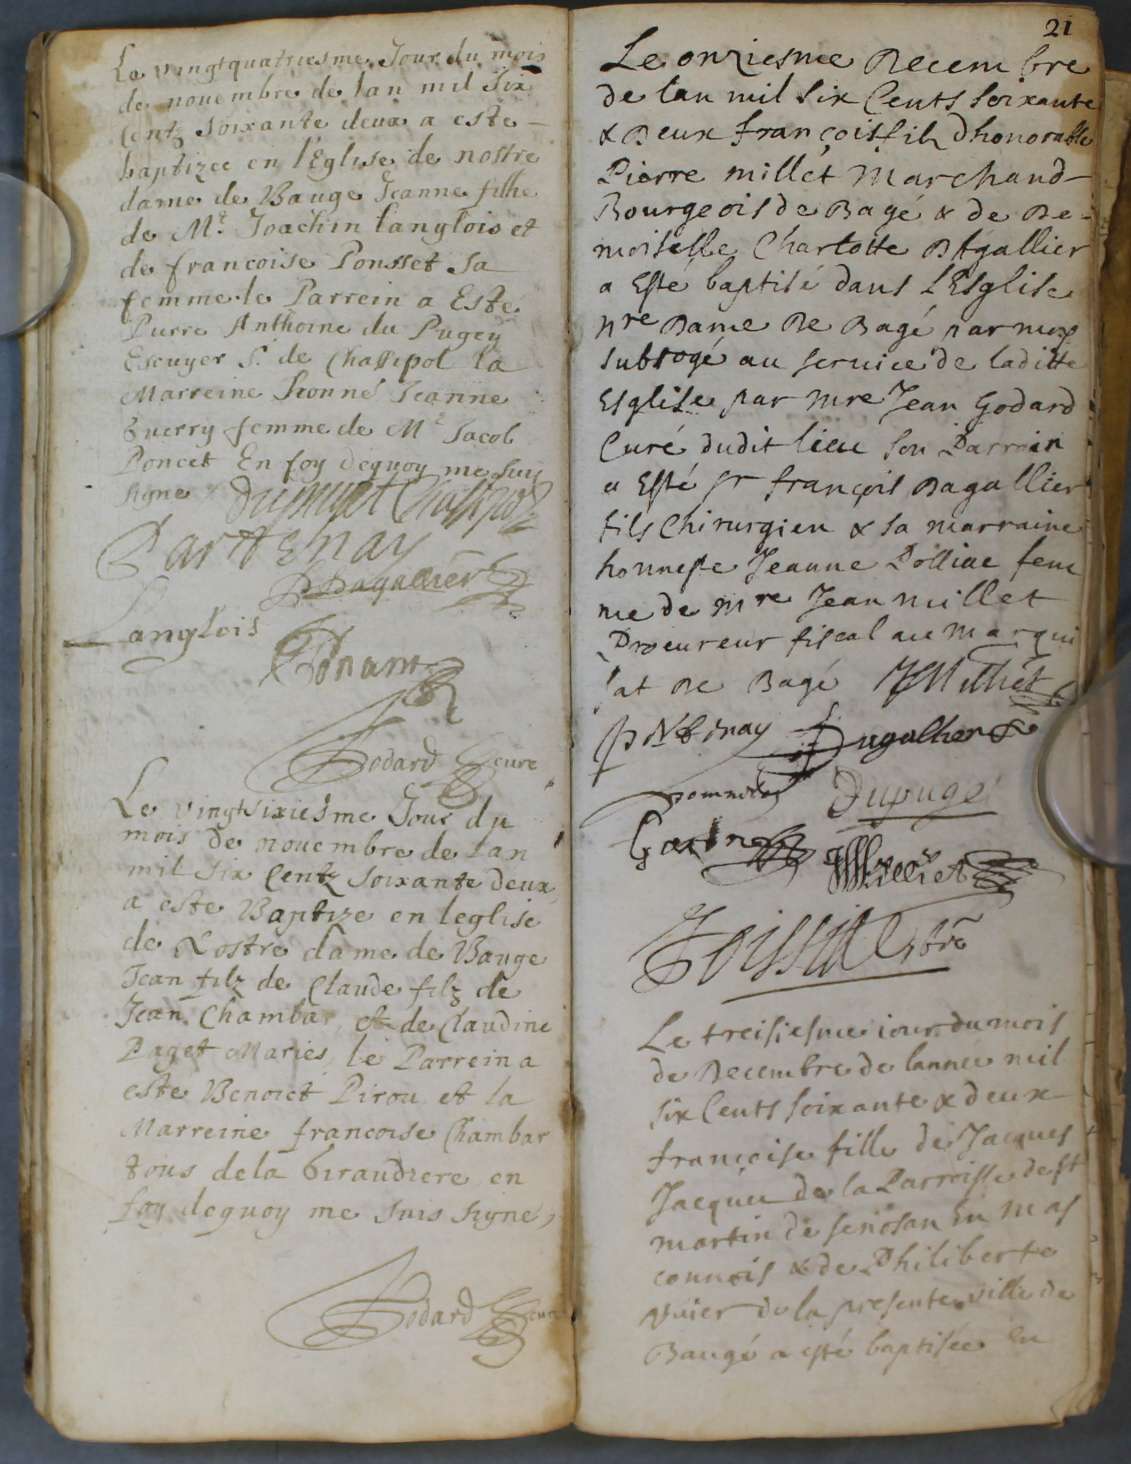 Le vingtquatriesme Jour du mois
de nouembre de lan mil Six
Centz Soixante deux a este
baptizee en l'Eglise de nostre
dame de Bauge Jeanne filhe
de Mt Joachin Langlois et
de francoise Ponsset sa
femme le Parrein a Este
Pierre Anthoine du Pugey
Escuyer Sr de Chassipol la
Marreine honne Jeanne
Guerry femme de Mt Jacob
Poncet En foy dequoy me suis
signe
Partenay
Bagallier
Langlois
Godard cure
Le vingtsixiesme Jour du
mois de nouembre de Lan
mil six Centz soixante deux
a este Baptize en leglise
de Nostre dame de Bauge
Jean filz de Claude filz de
Jean Chambar et de Claudine
Paget Maries le Parrein a
este Benoict Pirou et la
Marreine francoise Chambar
tous dela Giraudiere en
foy dequoy me suis signe
Godard cure
21
Le onziesme Decembre
de lan mil six Cents soixante
& Deux françois filz dhonorable
Pierre millet Marchand
Bourgeois de Bagé & de De-
moiselle Charlotte Bagallier
a Esté baptisé dans L'Esglise
nre Dame De Bagé par moy
subrogé au seruice de laditte
Esglise par mre Jean Godard
Curé dudit lieu son Parrain
a Esté sr françois Bagallier
fils Chirurgien & sa marraine
honneste Jeanne Dolliac fem
me de mre Jean millet
Procureur fiscal au marqui
sat de Bagé JMillet
Bagallier
Dupuge
Le treisiesme iour du mois
de Decembre de lannee mil
six Cents soixante & deux
françoise fille de Jacques
Jacquier de la Parroisse de st
martin de senosan En mas
connois & de Philiberte
de la presente ville de
Baugé a esté baptisée En